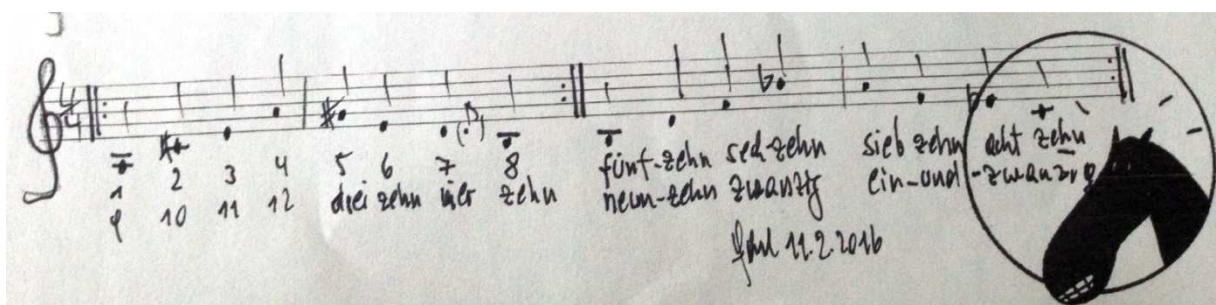 4/4
1 2 3 4 5 6 7 8 fünf-zehn sech-zehn sieb zehn acht zehn
9 10 11 12 drei zehn vier zehn neun-zehn zwanzig ein-und-zwanzig
11.2.2016